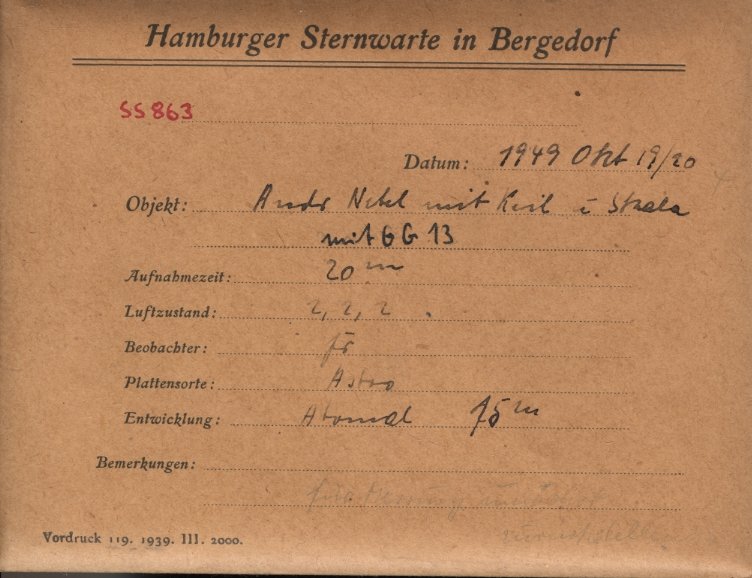 Hamburger Sternwarte in Bergedorf
SS863
Datum: 1949 Okt 19/20
Objekt: Andr Nebel mit Keil u Skala
mit GG 13
Aufnahmezeit: 20 m
Luftzustand: 2, 2, 2
Beobachter:
Plattensorte: Astro
Entwicklung: Atomal 15 m
Bemerkungen:
Vordruck 119. 1939. III. 2000.